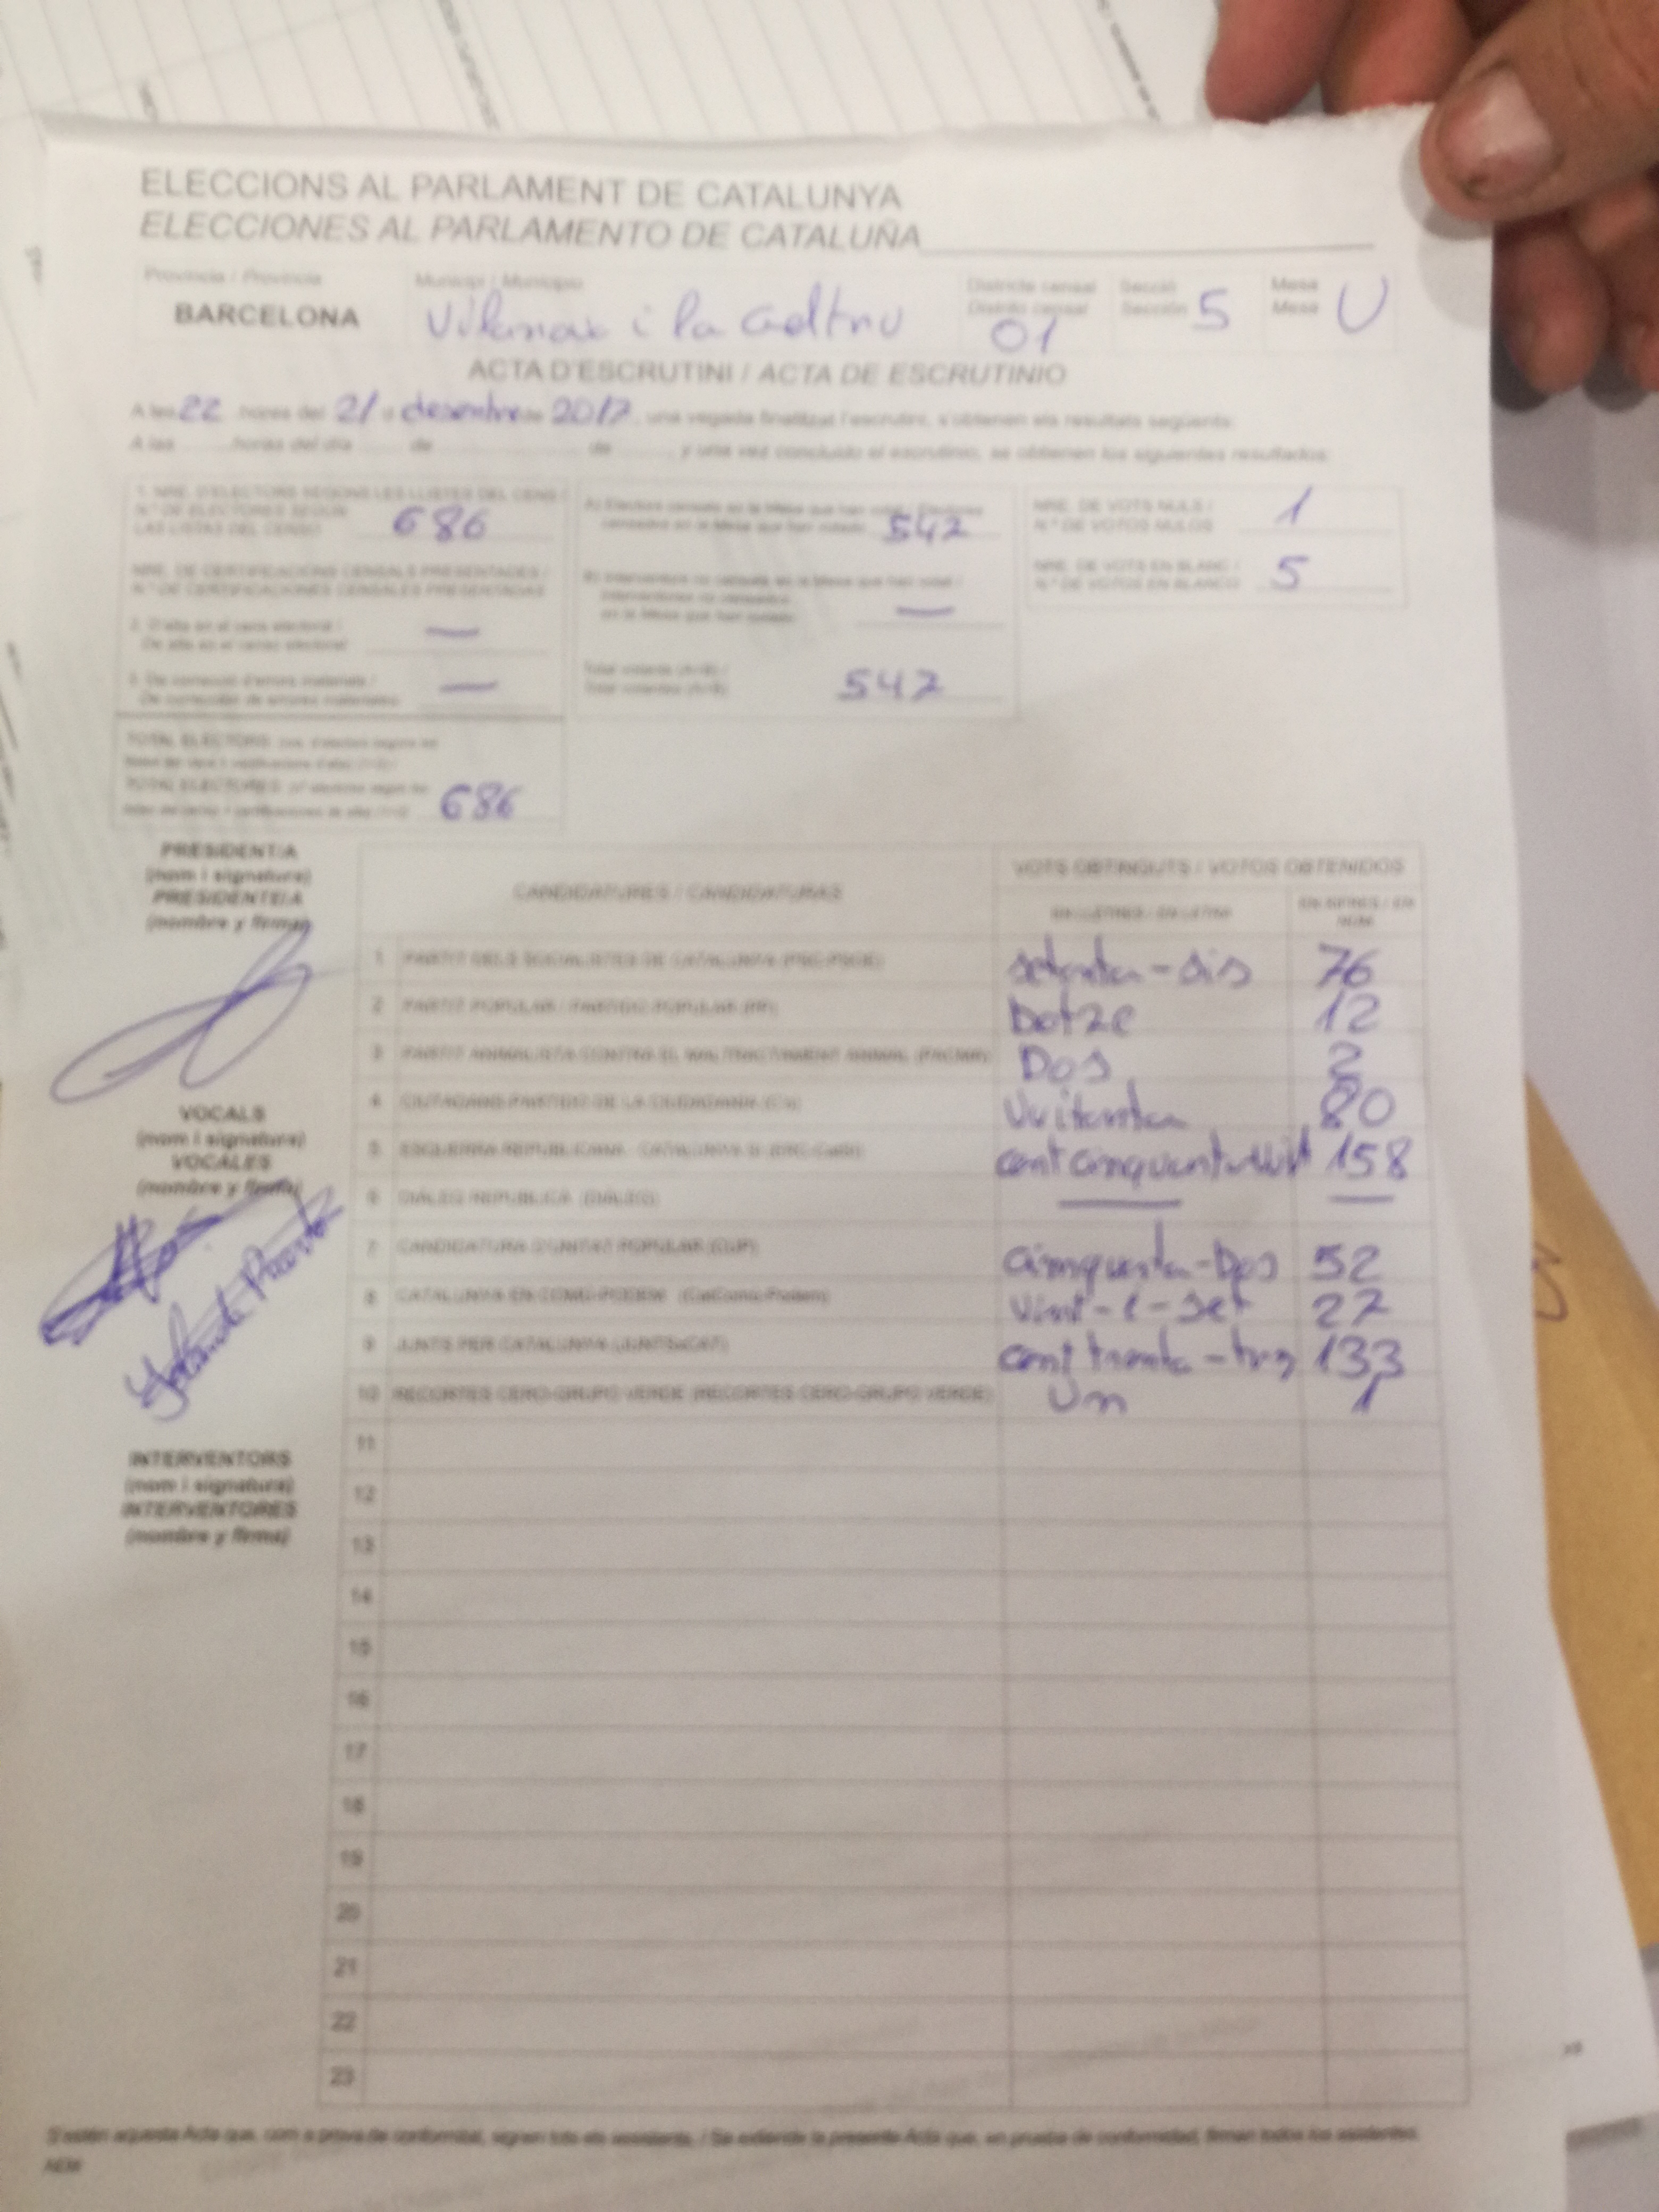 ELECCIONS AL PARLAMENT DE CATALUNYA
ELECCIONES AL PARLAMENTO DE CATALUÑA
Província / Provincia
Municipi / Municipio
Districte censal
Distrito censal
Secció
Sección
Mesa
Mesa
BARCELONA
Vilanova i la Geltru
01
5
U
ACTA D'ESCRUTINI / ACTA DE ESCRUTINIO
A les 22 hores del 21 d desembre de 2017, una vegada finalitzat l'escrutini, s'obtenen els resultats següents:
A las horas del día de de y una vez concluido el escrutinio, se obtienen los siguientes resultados:
1. NRE. D'ELECTORS SEGONS LES LLISTES DEL CENS /
N.º DE ELECTORES SEGÚN
LAS LISTAS DEL CENSO
686
NRE. DE CERTIFICACIONS CENSALS PRESENTADES /
N.º DE CERTIFICACIONES CENSALES PRESENTADAS
2. D'alta en el cens electoral /
De alta en el censo electoral
—
3. De correcció d'errors materials /
De corrección de errores materiales
—
TOTAL ELECTORS
TOTAL ELECTORES
686
A) Electors censats en la Mesa que han votat / Electores
censados en la Mesa que han votado
542
B) Interventors no censats en la Mesa que han votat /
Interventores no censados
en la Mesa que han votado
—
Total votants (A+B) /
Total votantes (A+B)
542
NRE. DE VOTS NULS /
N.º DE VOTOS NULOS
1
NRE. DE VOTS EN BLANC /
N.º DE VOTOS EN BLANCO
5
PRESIDENT/A
(nom i signatura)
PRESIDENTE/A
(nombre y firma)
VOCALS
(nom i signatura)
VOCALES
(nombre y firma)
INTERVENTORS
(nom i signatura)
INTERVENTORES
(nombre y firma)
CANDIDATURES / CANDIDATURAS
VOTS OBTINGUTS / VOTOS OBTENIDOS
EN LLETRES / EN LETRA
EN XIFRES / EN NÚM.
1 PARTIT DELS SOCIALISTES DE CATALUNYA (PSC-PSOE) setanta-sis 76
2 PARTIT POPULAR / PARTIDO POPULAR (PP) Dotze 12
3 PARTIT ANIMALISTA CONTRA EL MALTRACTAMENT ANIMAL (PACMA) Dos 2
4 CIUTADANS-PARTIDO DE LA CIUDADANÍA (Cs) Vuitanta 80
5 ESQUERRA REPUBLICANA - CATALUNYA SÍ (ERC-CatSí) cent cinquanta-vuit 158
6 DIÀLEG REPÚBLICA (DIÀLEG) — —
7 CANDIDATURA D'UNITAT POPULAR (CUP) cinquanta-Dos 52
8 CATALUNYA EN COMÚ-PODEM (CatComú-Podem) Vint-i-set 27
9 JUNTS PER CATALUNYA (JUNTSxCAT) cent trenta-tres 133
10 RECORTES CERO-GRUPO VERDE (RECORTES CERO-GRUPO VERDE) Un 1
11
12
13
14
15
16
17
18
19
20
21
22
23
S'estén aquesta Acta que, com a prova de conformitat, signen tots els assistents. / Se extiende la presente Acta que, en prueba de conformidad, firman todos los asistentes.